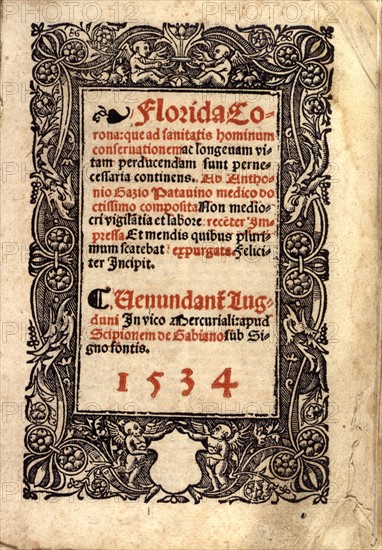 Florida Co-
rona: que ad sanitatis hominum
conseruationem ac longeuam vi-
tam perducendam sunt perne-
cessaria continens. Ab Antho-
nio Gazio Patauino medico do
ctissimo composita Non medio-
cri vigilātia et labore recēter Im-
pressa Et mendis quibus pluri-
mum scatebat expurgata Felici-
ter Incipit.
C Uenundant̄ Lug-
duni In vico Mercuriali: apud
Scipionem de Gabiano sub Si-
gno fontis.
1534